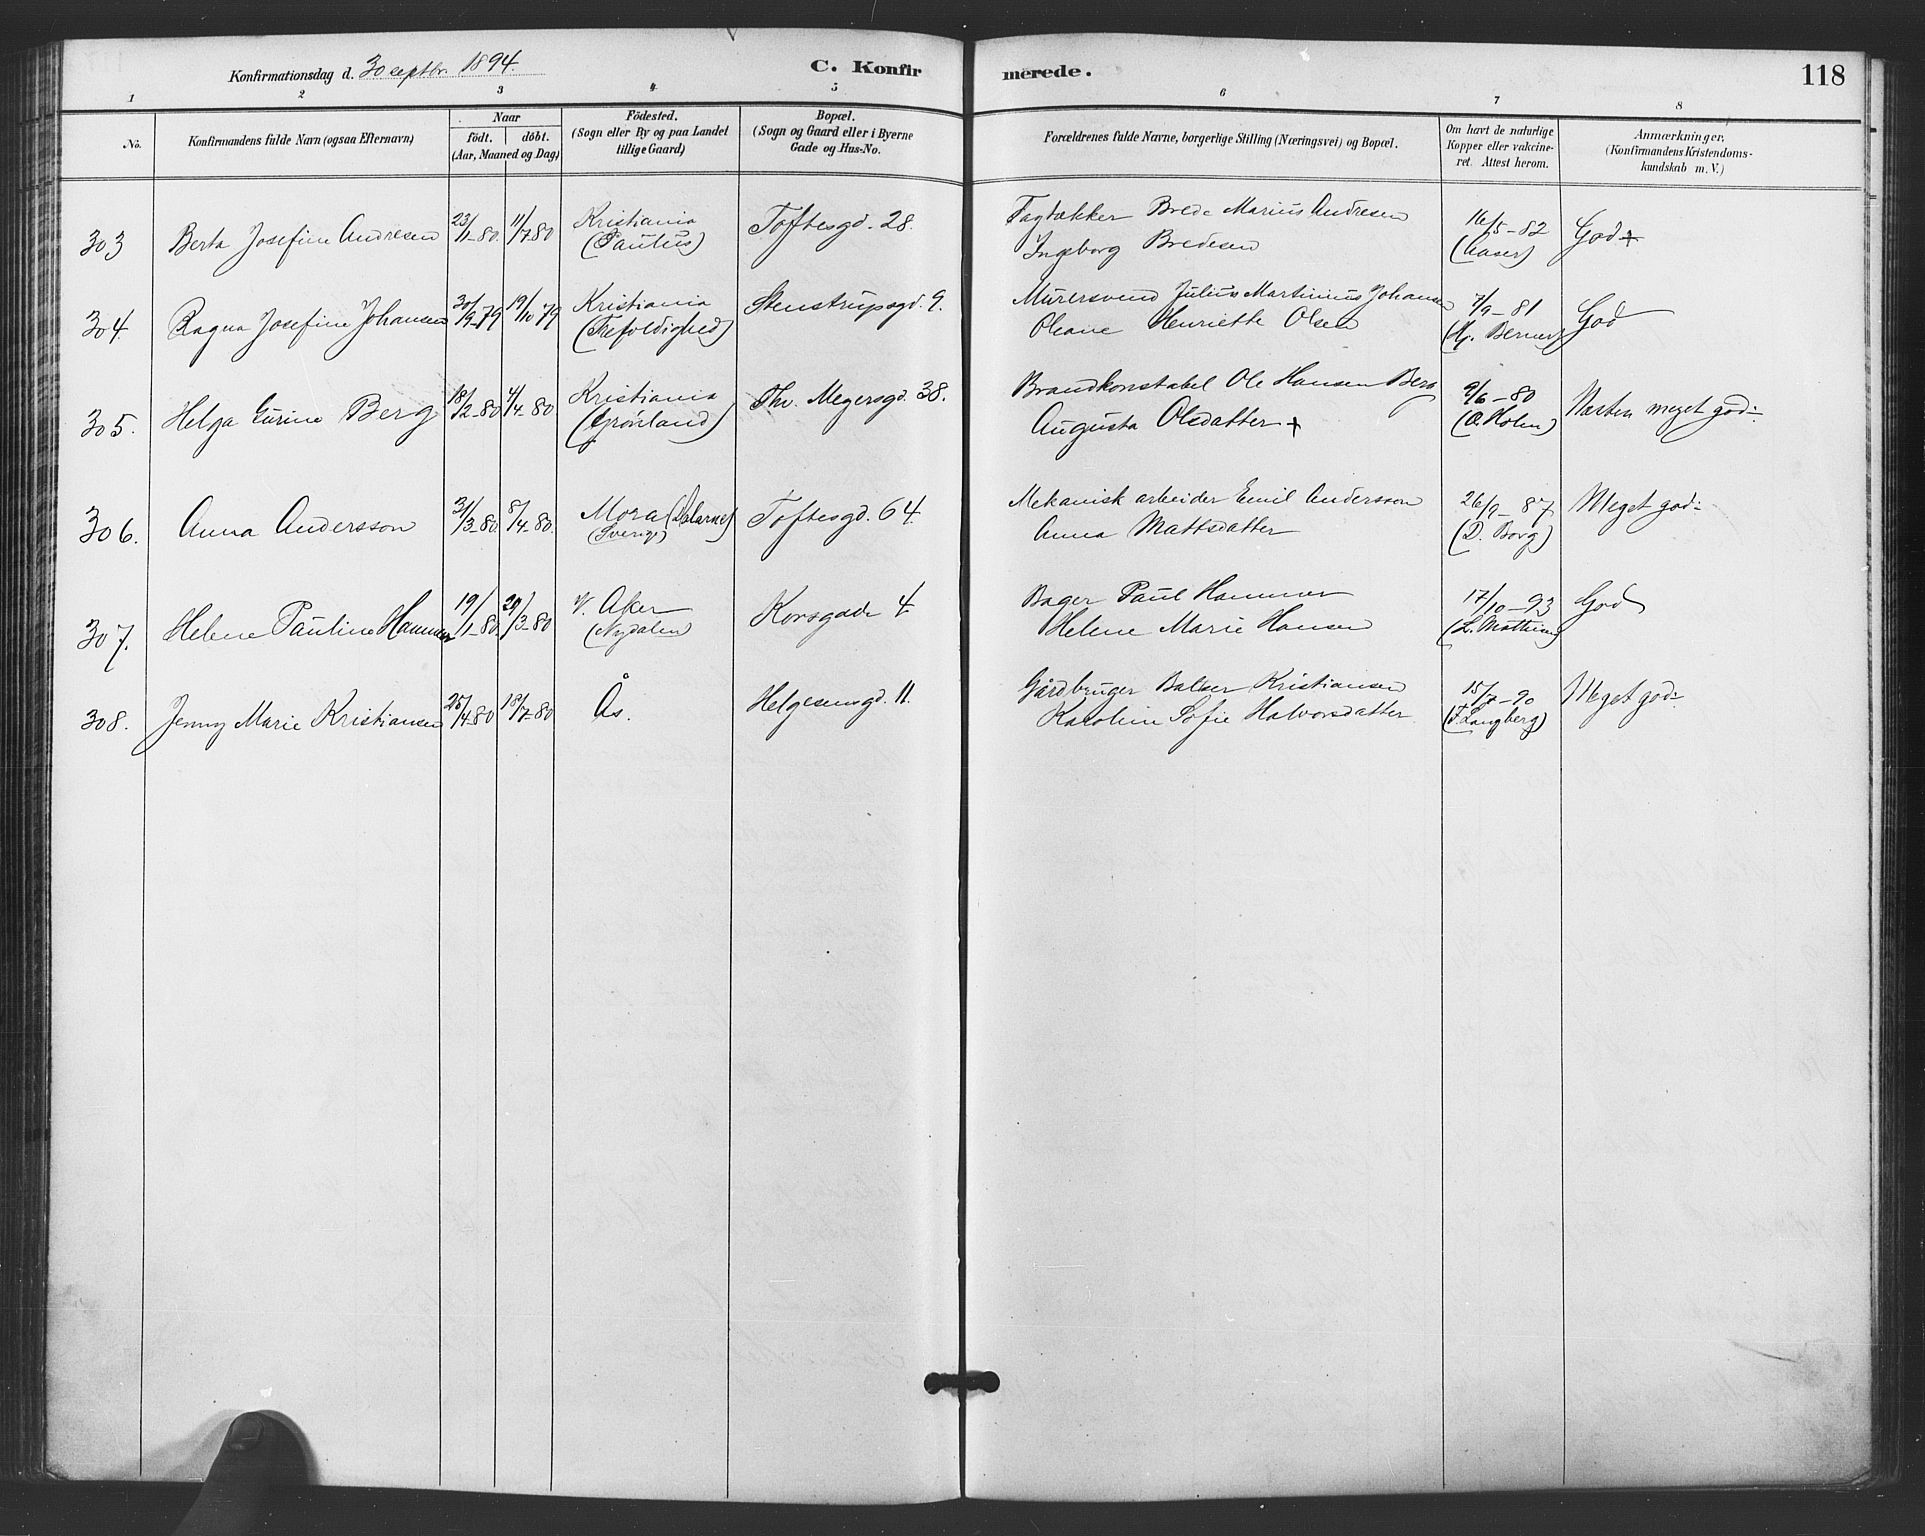 Konfirmationsdag d. 30 septbr. 1894.
C. Konfir merede.
118
1 2 3 4 5 6 7 8
No.
Konfirmandens fulde Navn (ogsaa Efternavn)
Naar
födt. döbt.
(Aar, Maaned og Dag)
Födested.
(Sogn eller By og paa Landet
tillige Gaard)
Bopæl.
(Sogn og Gaard eller i Byerne
Gade og Hus-No.
Forældrenes fulde Navne, borgerlige Stilling (Næringsvei) og Bopæl.
Om havt de naturlige
Kopper eller vakcine-
ret. Attest herom.
Anmærkninger,
(Konfirmandens Kristendoms-
kundskab m. V.)
303 Berta Josefine Andresen 23/1-80. 11/7 80 Kristiania (Paulus) Toftesgd. 28. Tagtækker Brede Marius Andresen 16/5-82 God
Ingeborg Bredesen (Aaser)
304. Ragna Josefine Johansen 30/9-79 19/10 79 Kristiania (Trefoldighed) Stenstrupsgd. 9. Murersvend Julius Martinius Johansen 7/9-81 God
Oleane Henriette Olsen (Hj. Berner)
305. Helga Gurine Berg 18/2-80 4/4-80 Kristiania (Grönland) Thv. Meyersgd. 38. Brandkonstabel Ole Hansen Berg 9/6-80 Næsten meget god:
Augusta Olsdatter + (A. Holm)
306. Anna Andersson 31/3-80. 8/4-80. Mora (Dalarne) (Sverige) Toftesgd. 64. Mekanisk arbeider Emil Andersson 26/9-87 Meget god:
Anna Mattsdatter (D. Borg)
307. Helene Pauline Hammer 19/1-80. 29/3-80 V. Aker (Nydalen) Korsgade 4. Bager Paul Hammer 17/10-93 God
Helene Marie Hansen (L. Mathisen)
308. Jenny Marie Kristiansen 25/4-80 18/7-80 Ås. Helgesensgd. 11. Gårdbruger Baltser Kristiansen 15/7-90 Meget god:
Karoline Sofie Halvorsdatter (F. Langberg)